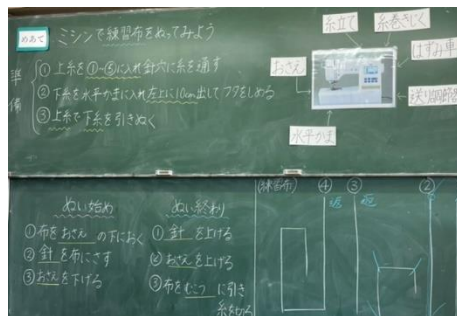 めあて ミシンで練習布をぬってみよう
準備
① 上糸を①~⑤に入れ針穴に糸を通す
② 下糸を水平かまに入れ左上に10cm出してフタをしめる
③ 上糸で下糸を引きぬく
糸立て
糸巻きじく
はずみ車
おさえ
送り調節器
水平かま
ぬい始め
① 布をおさえの下におく
② 針を布にさす
③ おさえを下げる
ぬい終わり
① 針を上げる
② おさえを上げる
③ 布をむこうに引き
糸を切る
(練習布)
④
③
②
返